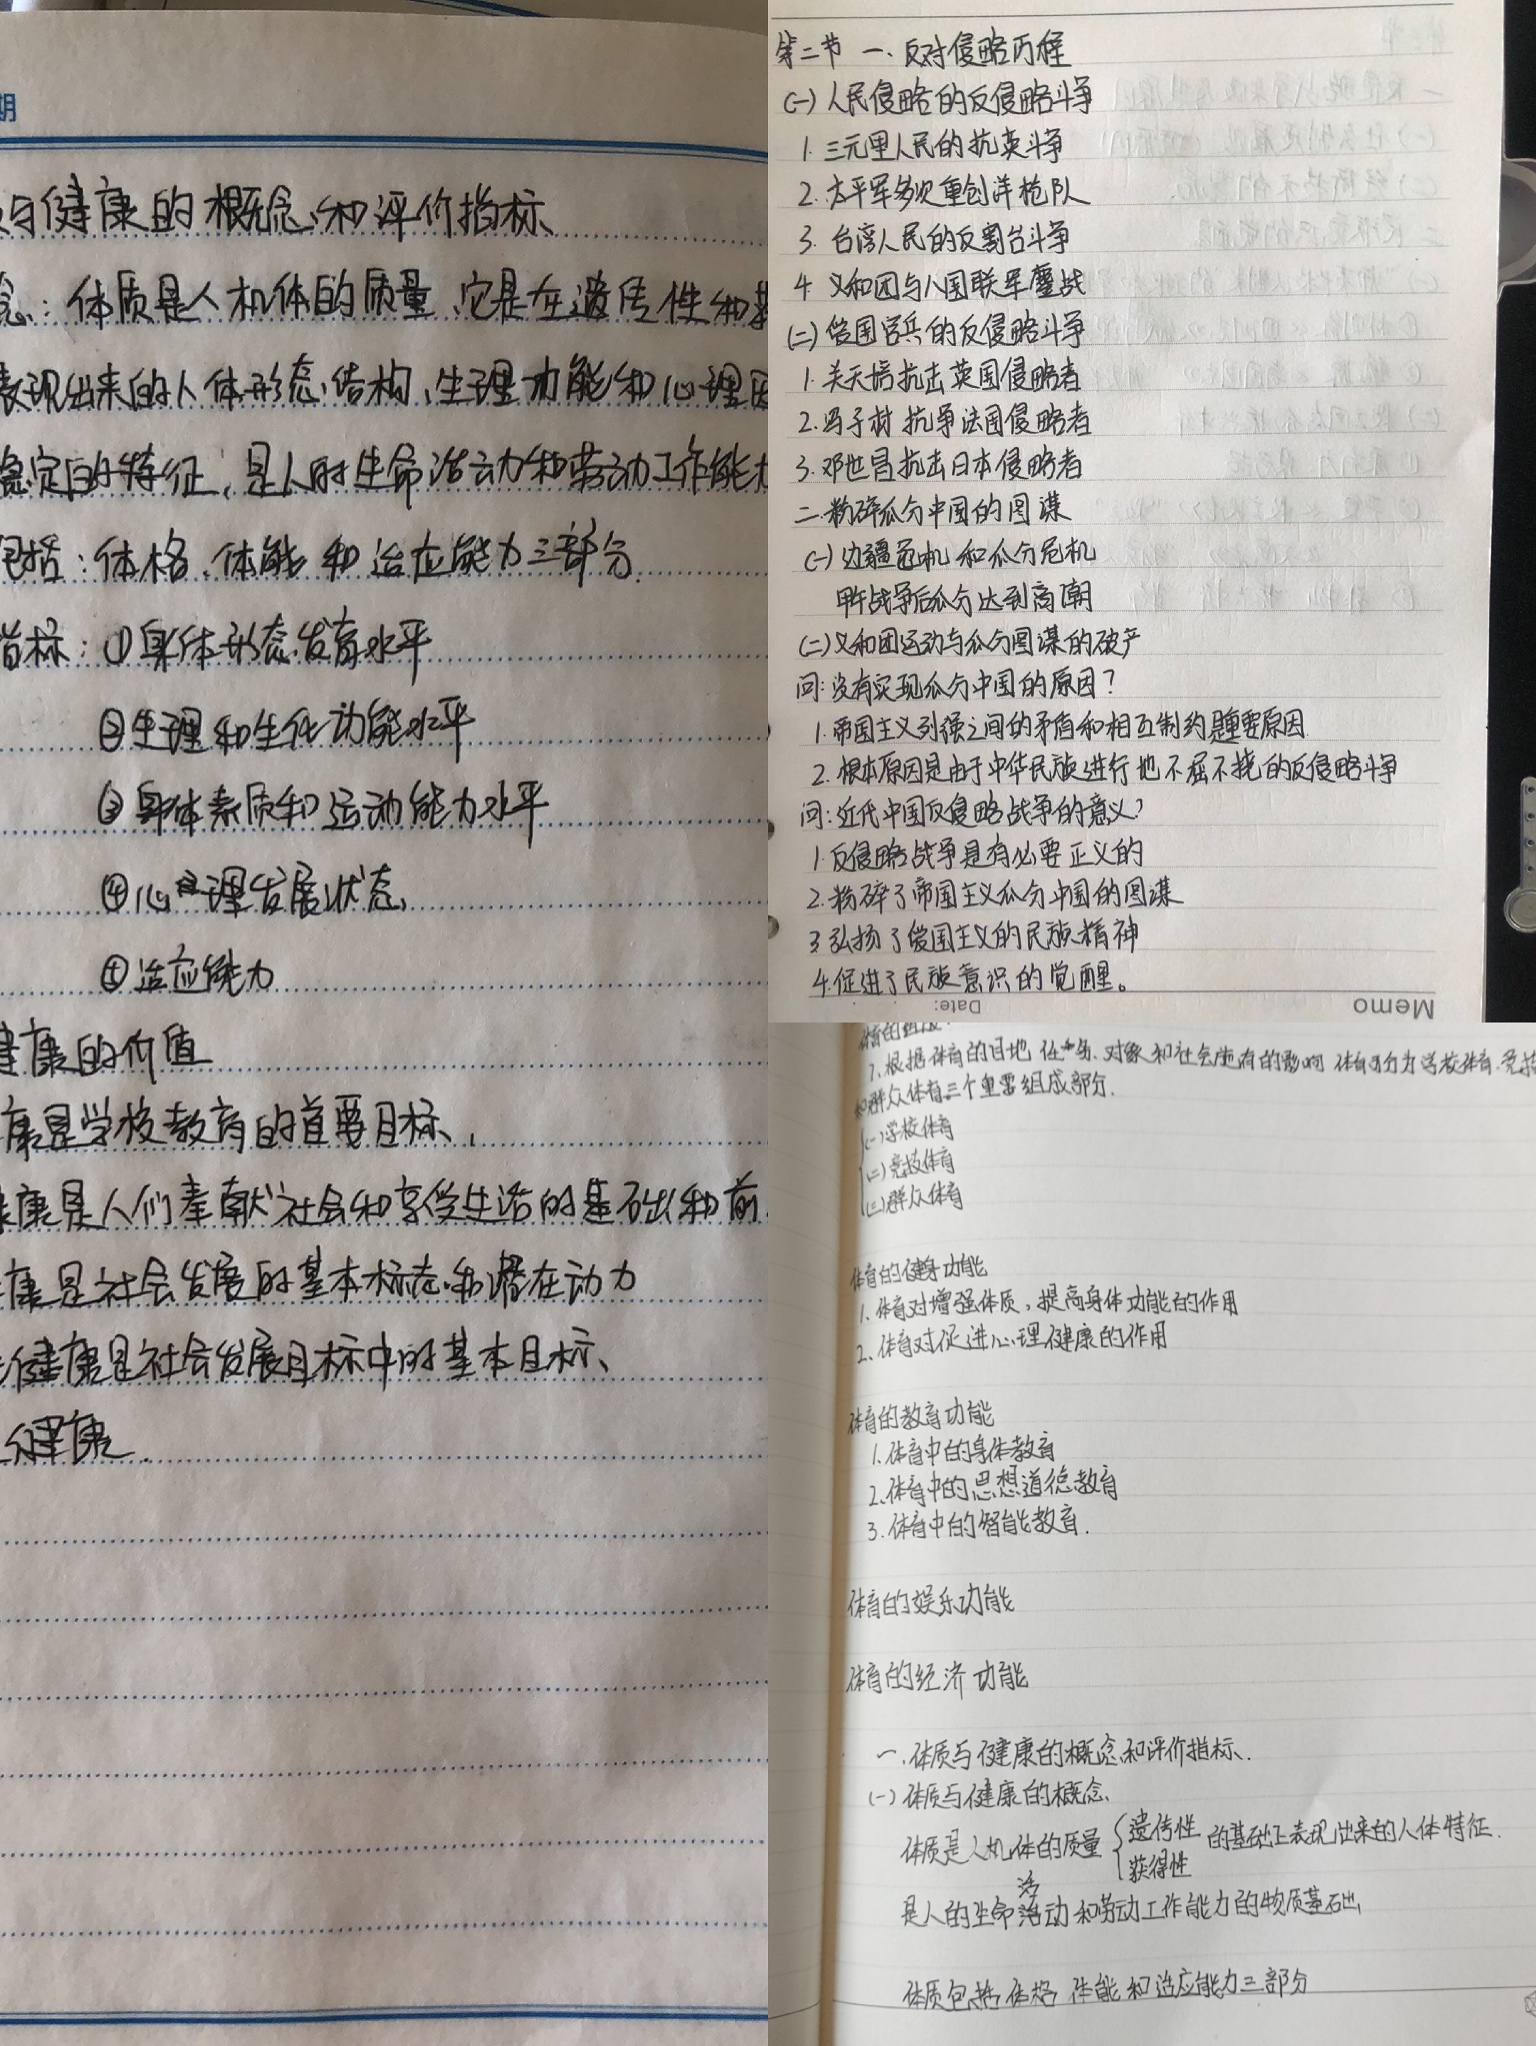 期
与健康的概念和评价指标
念：体质是人机体的质量，它是在遗传性和
表现出来的人体形态、结构、生理功能和心理因
稳定的特征，是人的生命活动和劳动工作能力
包括：体格、体能和适应能力三部分
指标：①身体形态发育水平
②生理和生化功能水平
③身体素质和运动能力水平
④心理发展状态
⑤适应能力
健康的价值
康是学校教育的首要目标、
健康是人们奉献社会和享受生活的基础和前
康是社会发展的基本标志和潜在动力
健康是社会发展目标中的基本目标、
健康
第二节 一、反对侵略历程
(一) 人民侵略的反侵略斗争
1. 三元里人民的抗英斗争
2. 太平军多次重创洋枪队
3. 台湾人民的反割台斗争
4 义和团与八国联军鏖战
(二) 爱国官兵的反侵略斗争
1. 关天培抗击英国侵略者
2. 冯子材抗争法国侵略者
3. 邓世昌抗击日本侵略者
二.粉碎瓜分中国的图谋
(一) 边疆危机和瓜分危机
甲午战争后瓜分达到高潮
(二) 义和团运动与瓜分图谋的破产
问：没有实现瓜分中国的原因？
1. 帝国主义列强之间的矛盾和相互制约是重要原因
2. 根本原因是由于中华民族进行地不屈不挠的反侵略斗争
问：近代中国反侵略战争的意义？
1. 反侵略战争是有必要正义的
2. 粉碎了帝国主义瓜分中国的图谋
3 弘扬了爱国主义的民族精神
4. 促进了民族意识的觉醒。
Date:
Memo
1、根据体育的目地 任务、对象和社会施有的影响 体育可分为学校体育、竞技
和群众体育三个重要组成部分.
(一)学校体育
(二)竞技体育
(三)群众体育
体育的健身功能
1、体育对增强体质，提高身体功能的作用
2、体育对促进心理健康的作用
体育的教育功能
1.体育中的身体教育
2、体育中的思想道德教育
3.体育中的智能教育.
体育的娱乐功能
体育的经济功能
一.体质与健康的概念和评价指标.
(一)体质与健康的概念
体质是人机体的质量{遗传性 获得性 的基础上表现出来的人体特征.
是人的生命活动和劳动工作能力的物质基础
体质包括体格 体能和适应能力三部分